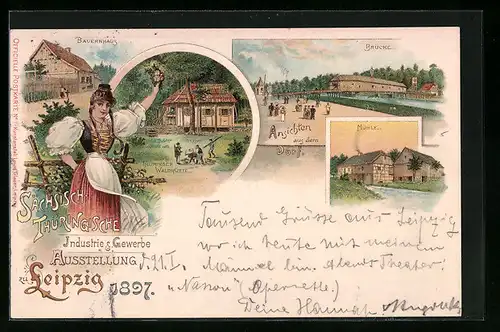 BAUERNHAUS
BRÜCKE
Ansichten
aus dem
Dorf.
MÜHLE
WALDHÜTTE
SÄCHSISCH
THÜRINGISCHE
Industrie & Gewerbe
AUSSTELLUNG
zu Leipzig 1897.
Tausend Grüsse aus Leipzig
wo ich heute mit meinem
Männel bin. Abends Theater:
(Operette)
Deine Hannah